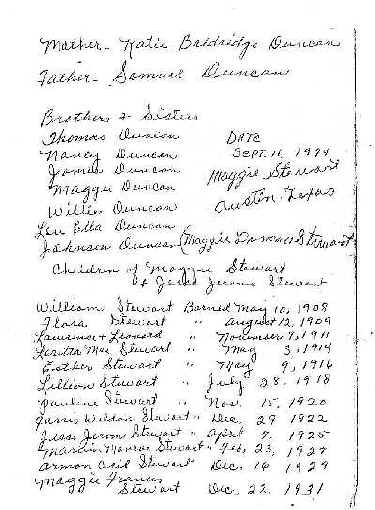 Mother - Katie Baldridge Duncan
Father - Samuel Duncan
Brothers & Sisters
Thomas Duncan
Nancy Duncan
James Duncan
Maggie Duncan
Willie Duncan
Lou Etta Duncan
Johnson Duncan
DATE
SEPT. 11, 1974
Maggie Stewart
Austin, Texas
(Maggie Duncan Stewart
Children of Maggie Stewart
& Jesse Jerome Stewart
William Stewart Borned May 10, 1908
Flora Stewart " August 12, 1909
Laurance & Leonard " November 9, 1911
Loretta Mae Stewart " May 3, 1914
Esther Stewart " May 9, 1916
Lillian Stewart " July 28, 1918
Pauline Stewart " Nov. 15, 1920
Wilson Stewart " Dec. 29 1922
Jesse Jerom Stewart " April 7, 1925
Martin Monroe Stewart " Feb, 23, 1927
Armon Cecil Stewart " Dec. 16 1929
Maggie Francis
Stewart Dec. 22, 1931